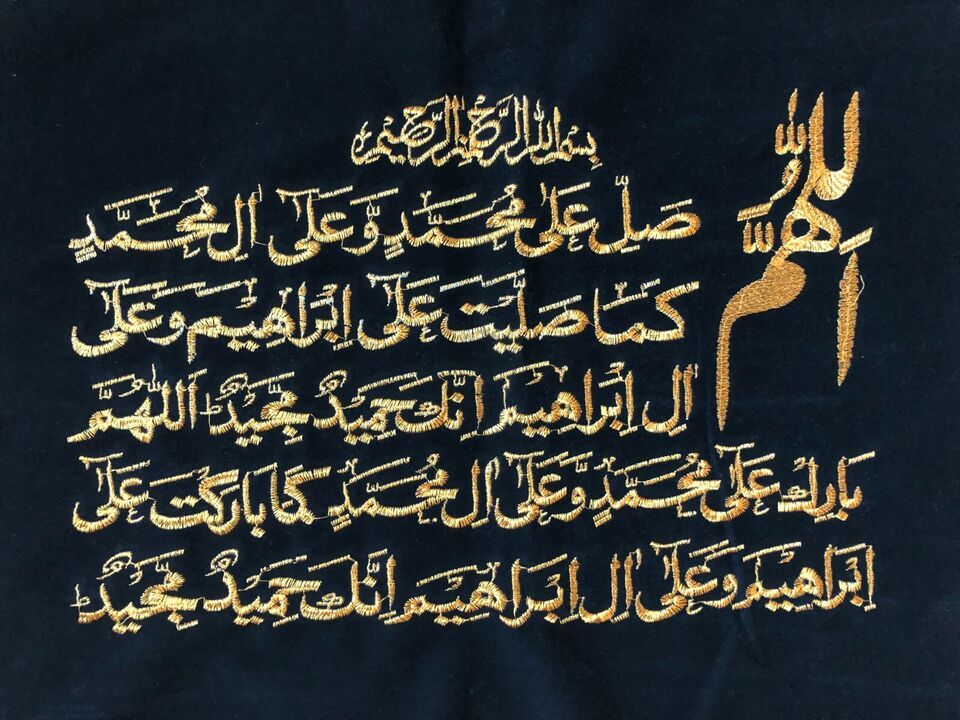 بِسْمِ اللهِ الرَّحْمٰنِ الرَّحِيْمِ
اَللّٰهُمَّ
صَلِّ عَلٰى مُحَمَّدٍ وَّعَلٰى اٰلِ مُحَمَّدٍ
كَمَا صَلَّيْتَ عَلٰى اِبْرَاهِيْمَ وَعَلٰى
اٰلِ اِبْرَاهِيْمَ اِنَّكَ حَمِيْدٌ مَّجِيْدٌ ؕ اَللّٰهُمَّ
بَارِكْ عَلٰى مُحَمَّدٍ وَّعَلٰى اٰلِ مُحَمَّدٍ كَمَا بَارَكْتَ عَلٰى
اِبْرَاهِيْمَ وَعَلٰى اٰلِ اِبْرَاهِيْمَ اِنَّكَ حَمِيْدٌ مَّجِيْدٌ ؕ